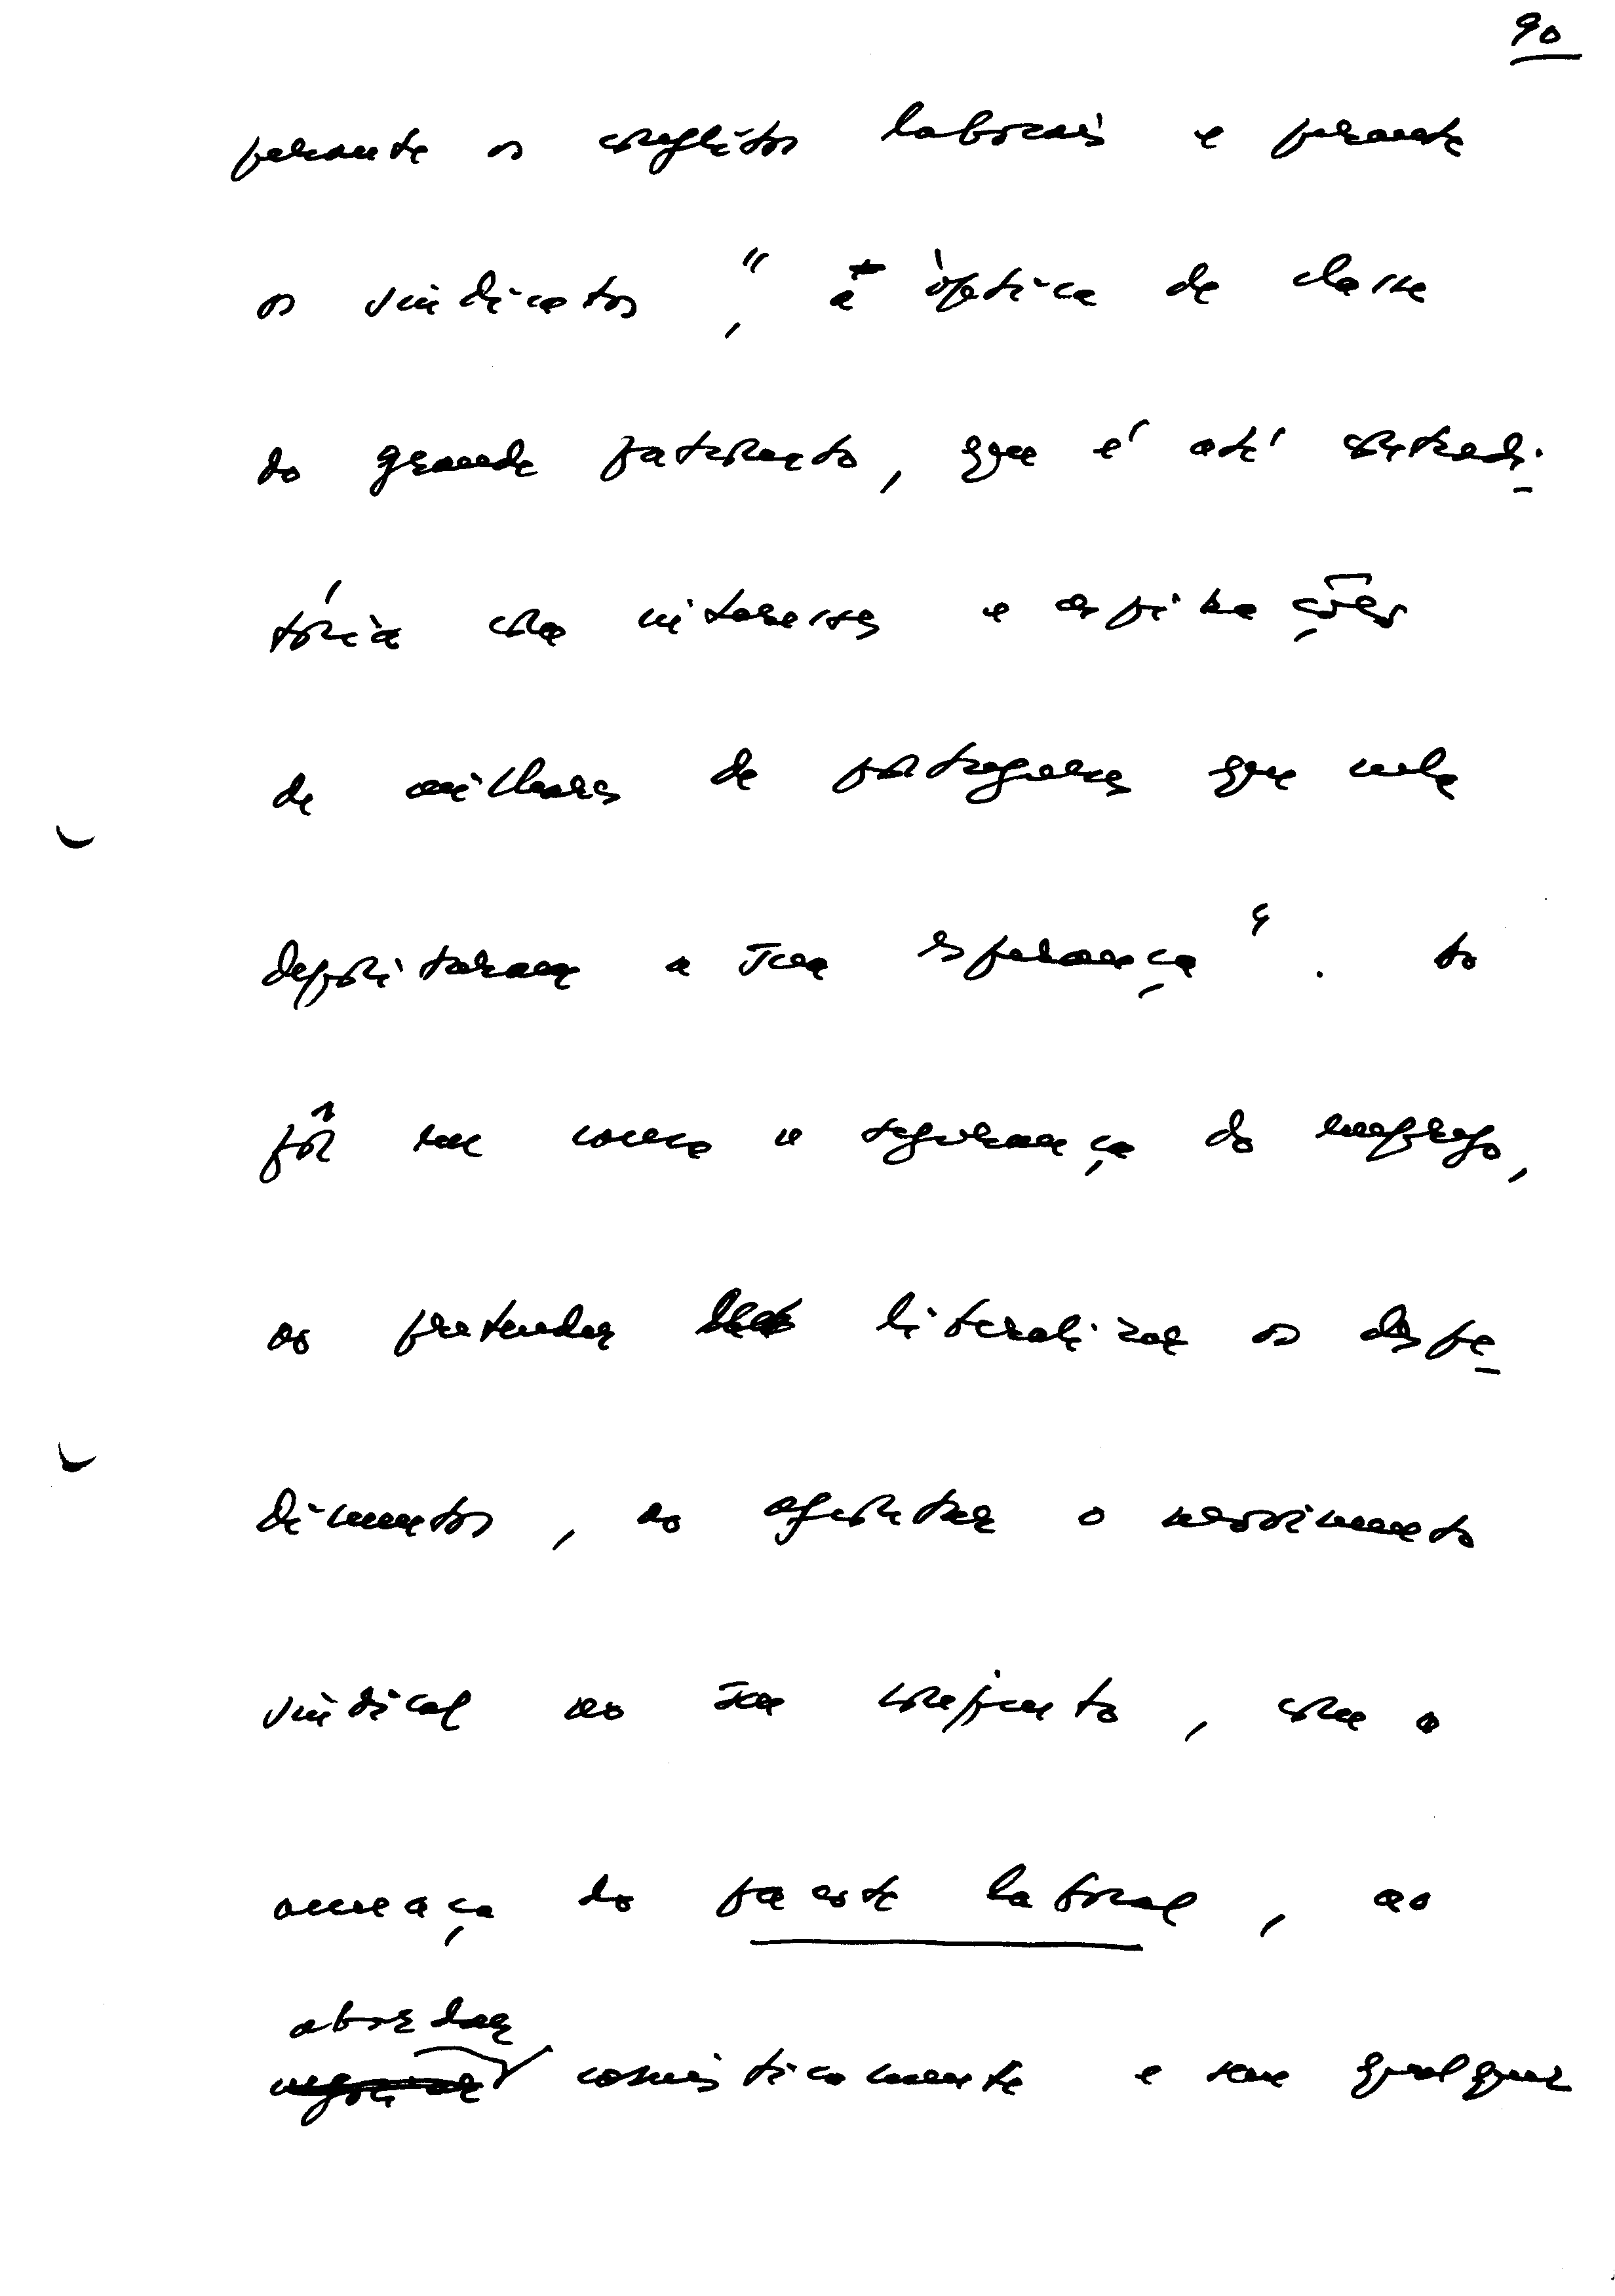 90
perante os conflitos laborais e perante
os sindicatos, " a óptica de classe
do grande patronato, que é até contradi-
tória com interesses e aspirações
de milhares de portugueses que nele
depositaram a sua esperança". Ao
pôr em causa a segurança do emprego,
ao pretender liberalizar os despe-
dimentos, ao afrontar o movimento
sindical no seu conjunto, com a
ameaça do pacote laboral, ao
abordar
casuisticamente e sem qualquer